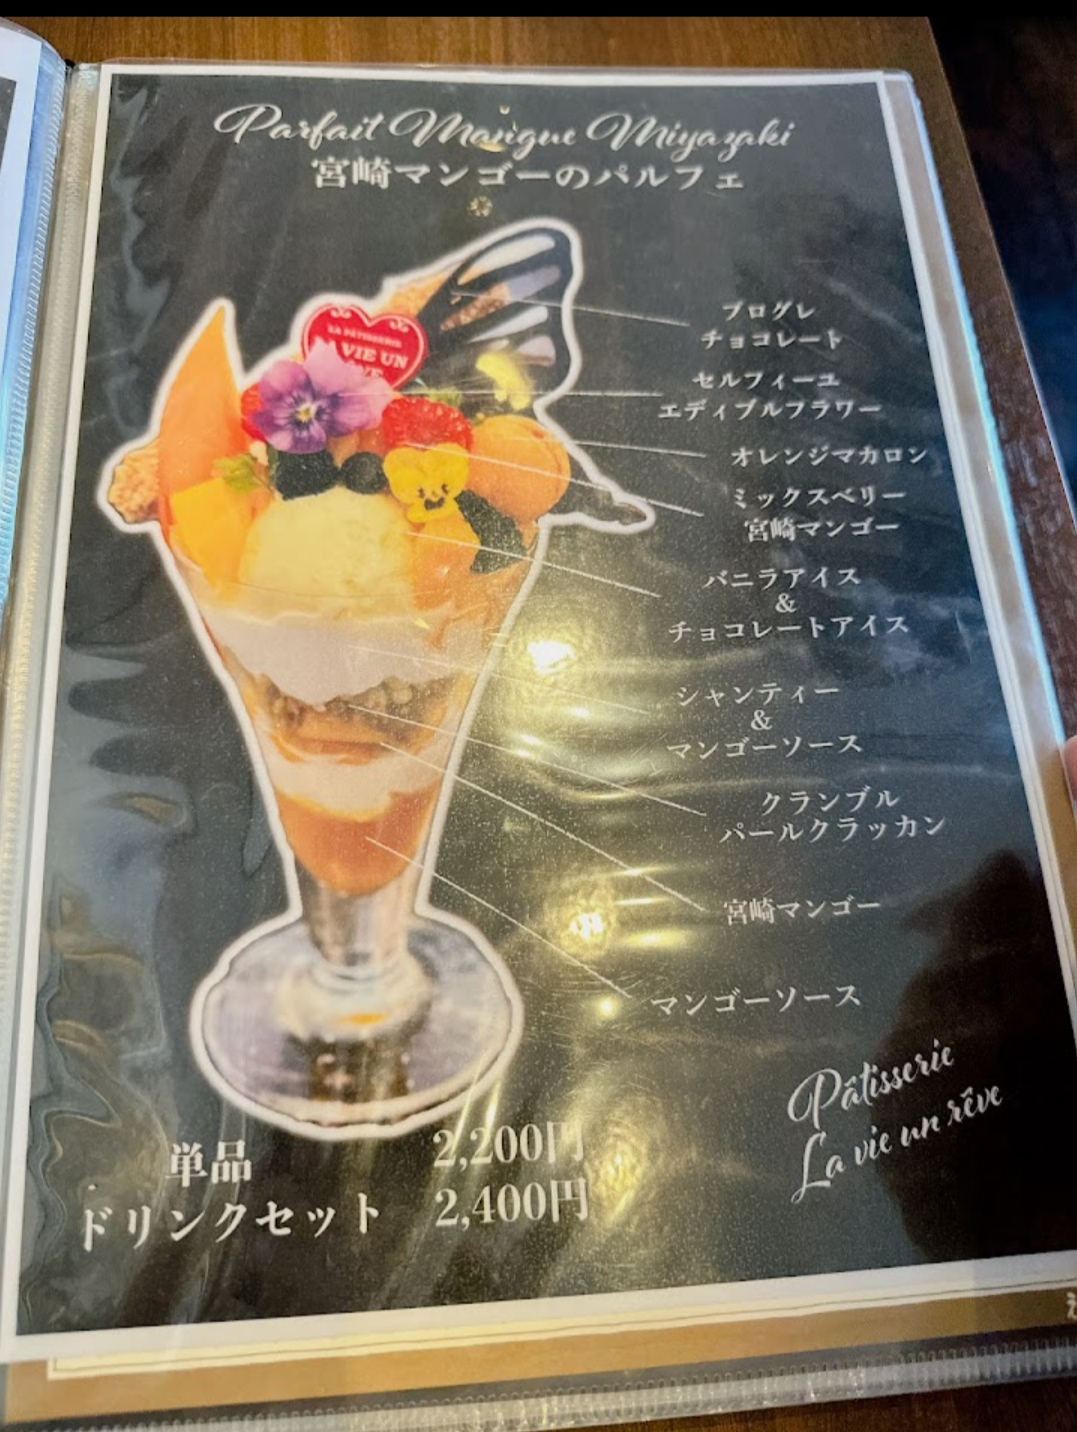 Parfait Mangue Miyazaki
宮崎マンゴーのパルフェ
LA PÂTISSERIE
VIE UN
プログレ
チョコレート
セルフィーユ
エディブルフラワー
オレンジマカロン
ミックスベリー
宮崎マンゴー
バニラアイス
&
チョコレートアイス
シャンティー
&
マンゴーソース
クランブル
パールクラッカン
宮崎マンゴー
マンゴーソース
Pâtisserie
La vie un rêve
単品 2,200円
ドリンクセット 2,400円